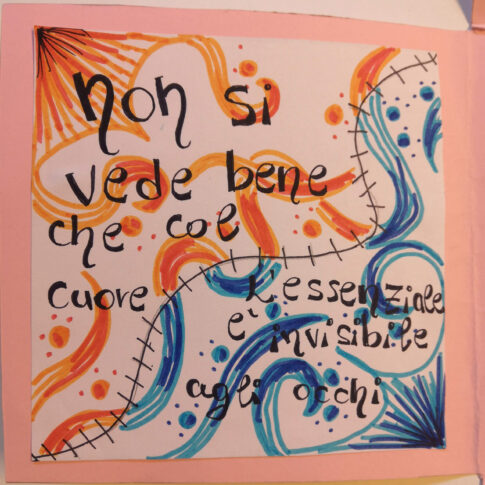 non si
vede bene
che col
cuore
L'essenziale
e' invisibile
agli occhi